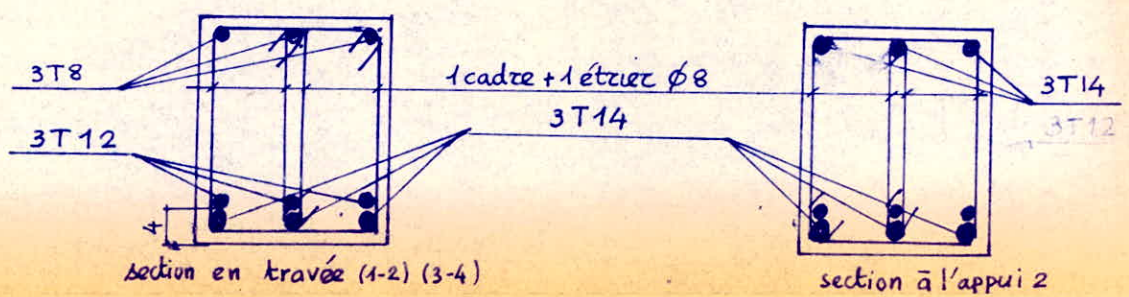 3T8
1 cadre + 1 étrier Ø8
3T14
3T14
3T12
3T12
4
section en travée (1-2) (3-4)
section à l'appui 2